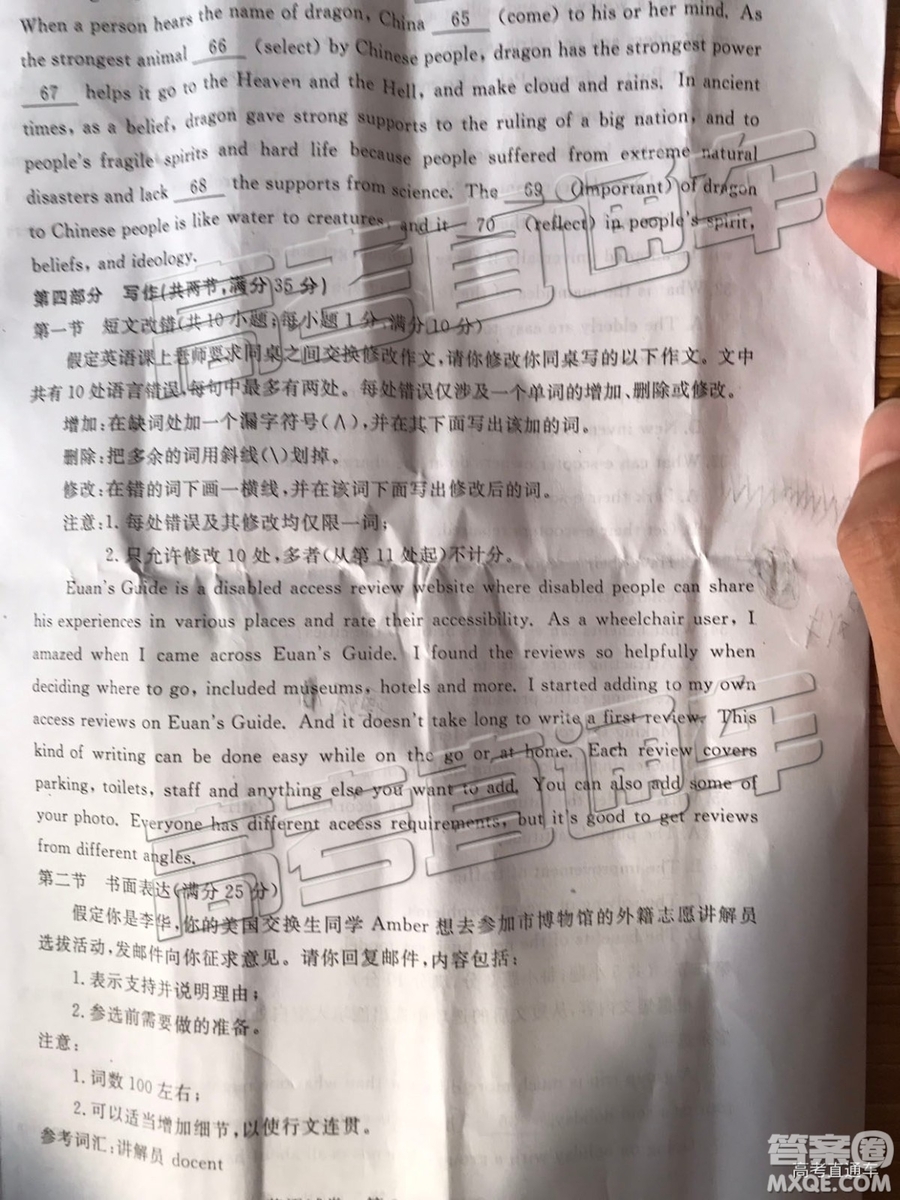 When a person hears the name of dragon, China 65 (come) to his or her mind. As
the strongest animal 66 (select) by Chinese people, dragon has the strongest power
67 helps it go to the Heaven and the Hell, and make cloud and rains. In ancient
times, as a belief, dragon gave strong supports to the ruling of a big nation, and to
people's fragile spirits and hard life because people suffered from extreme natural
disasters and lack 68 the supports from science. The 69 (important) of dragon
to Chinese people is like water to creatures, and it 70 (reflect) in people's spirit,
beliefs, and ideology.
第四部分 写作(共两节,满分35分)
第一节 短文改错(共10小题;每小题1分,满分10分)
假定英语课上老师要求同桌之间交换修改作文,请你修改你同桌写的以下作文。文中
共有10处语言错误,每句中最多有两处。每处错误仅涉及一个单词的增加、删除或修改。
增加:在缺词处加一个漏字符号(∧),并在其下面写出该加的词。
删除:把多余的词用斜线(\)划掉。
修改:在错的词下画一横线,并在该词下面写出修改后的词。
注意:1. 每处错误及其修改均仅限一词;
2. 只允许修改10处,多者(从第11处起)不计分。
Euan's Guide is a disabled access review website where disabled people can share
his experiences in various places and rate their accessibility. As a wheelchair user, I
amazed when I came across Euan's Guide. I found the reviews so helpfully when
deciding where to go, included museums, hotels and more. I started adding to my own
access reviews on Euan's Guide. And it doesn't take long to write a first review. This
kind of writing can be done easy while on the go or at home. Each review covers
parking, toilets, staff and anything else you want to add. You can also add some of
your photo. Everyone has different access requirements, but it's good to get reviews
from different angles.
第二节 书面表达(满分25分)
假定你是李华,你的美国交换生同学 Amber 想去参加市博物馆的外籍志愿讲解员
选拔活动,发邮件向你征求意见。请你回复邮件,内容包括:
1. 表示支持并说明理由;
2. 参选前需要做的准备。
注意:
1. 词数100左右;
2. 可以适当增加细节,以使行文连贯。
参考词汇:讲解员 docent
高考直通车
高考直通车
答案圈
高考直通车
MXQE.COM